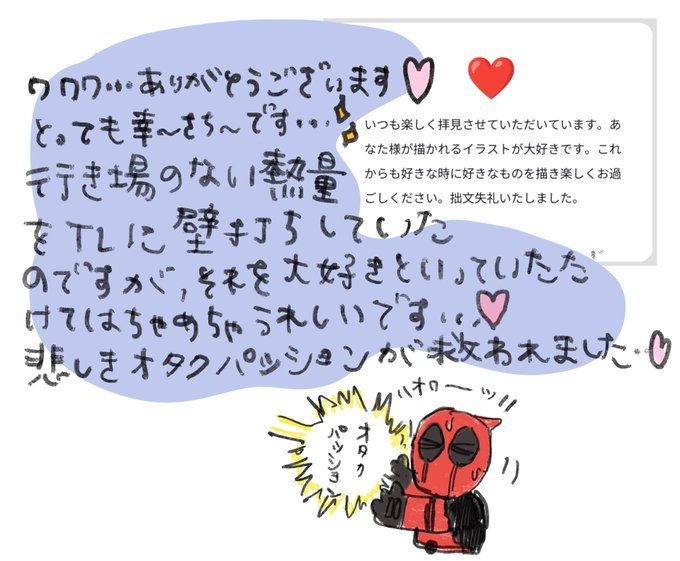 いつも楽しく拝見させていただいています。あ
なた様が描かれるイラストが大好きです。これ
からも好きな時に好きなものを描き楽しくお過
ごしください。拙文失礼いたしました。
ワワワ…ありがとうございます
とっても幸〜さち〜です…
行き場のない熱量
をTLに壁打ちしていた
のですが,それを大好きといっていただ
けてはちゃめちゃうれしいです…
悲しきオタクパッションが救われました…
オタク
パッション
ハオワーッ!!